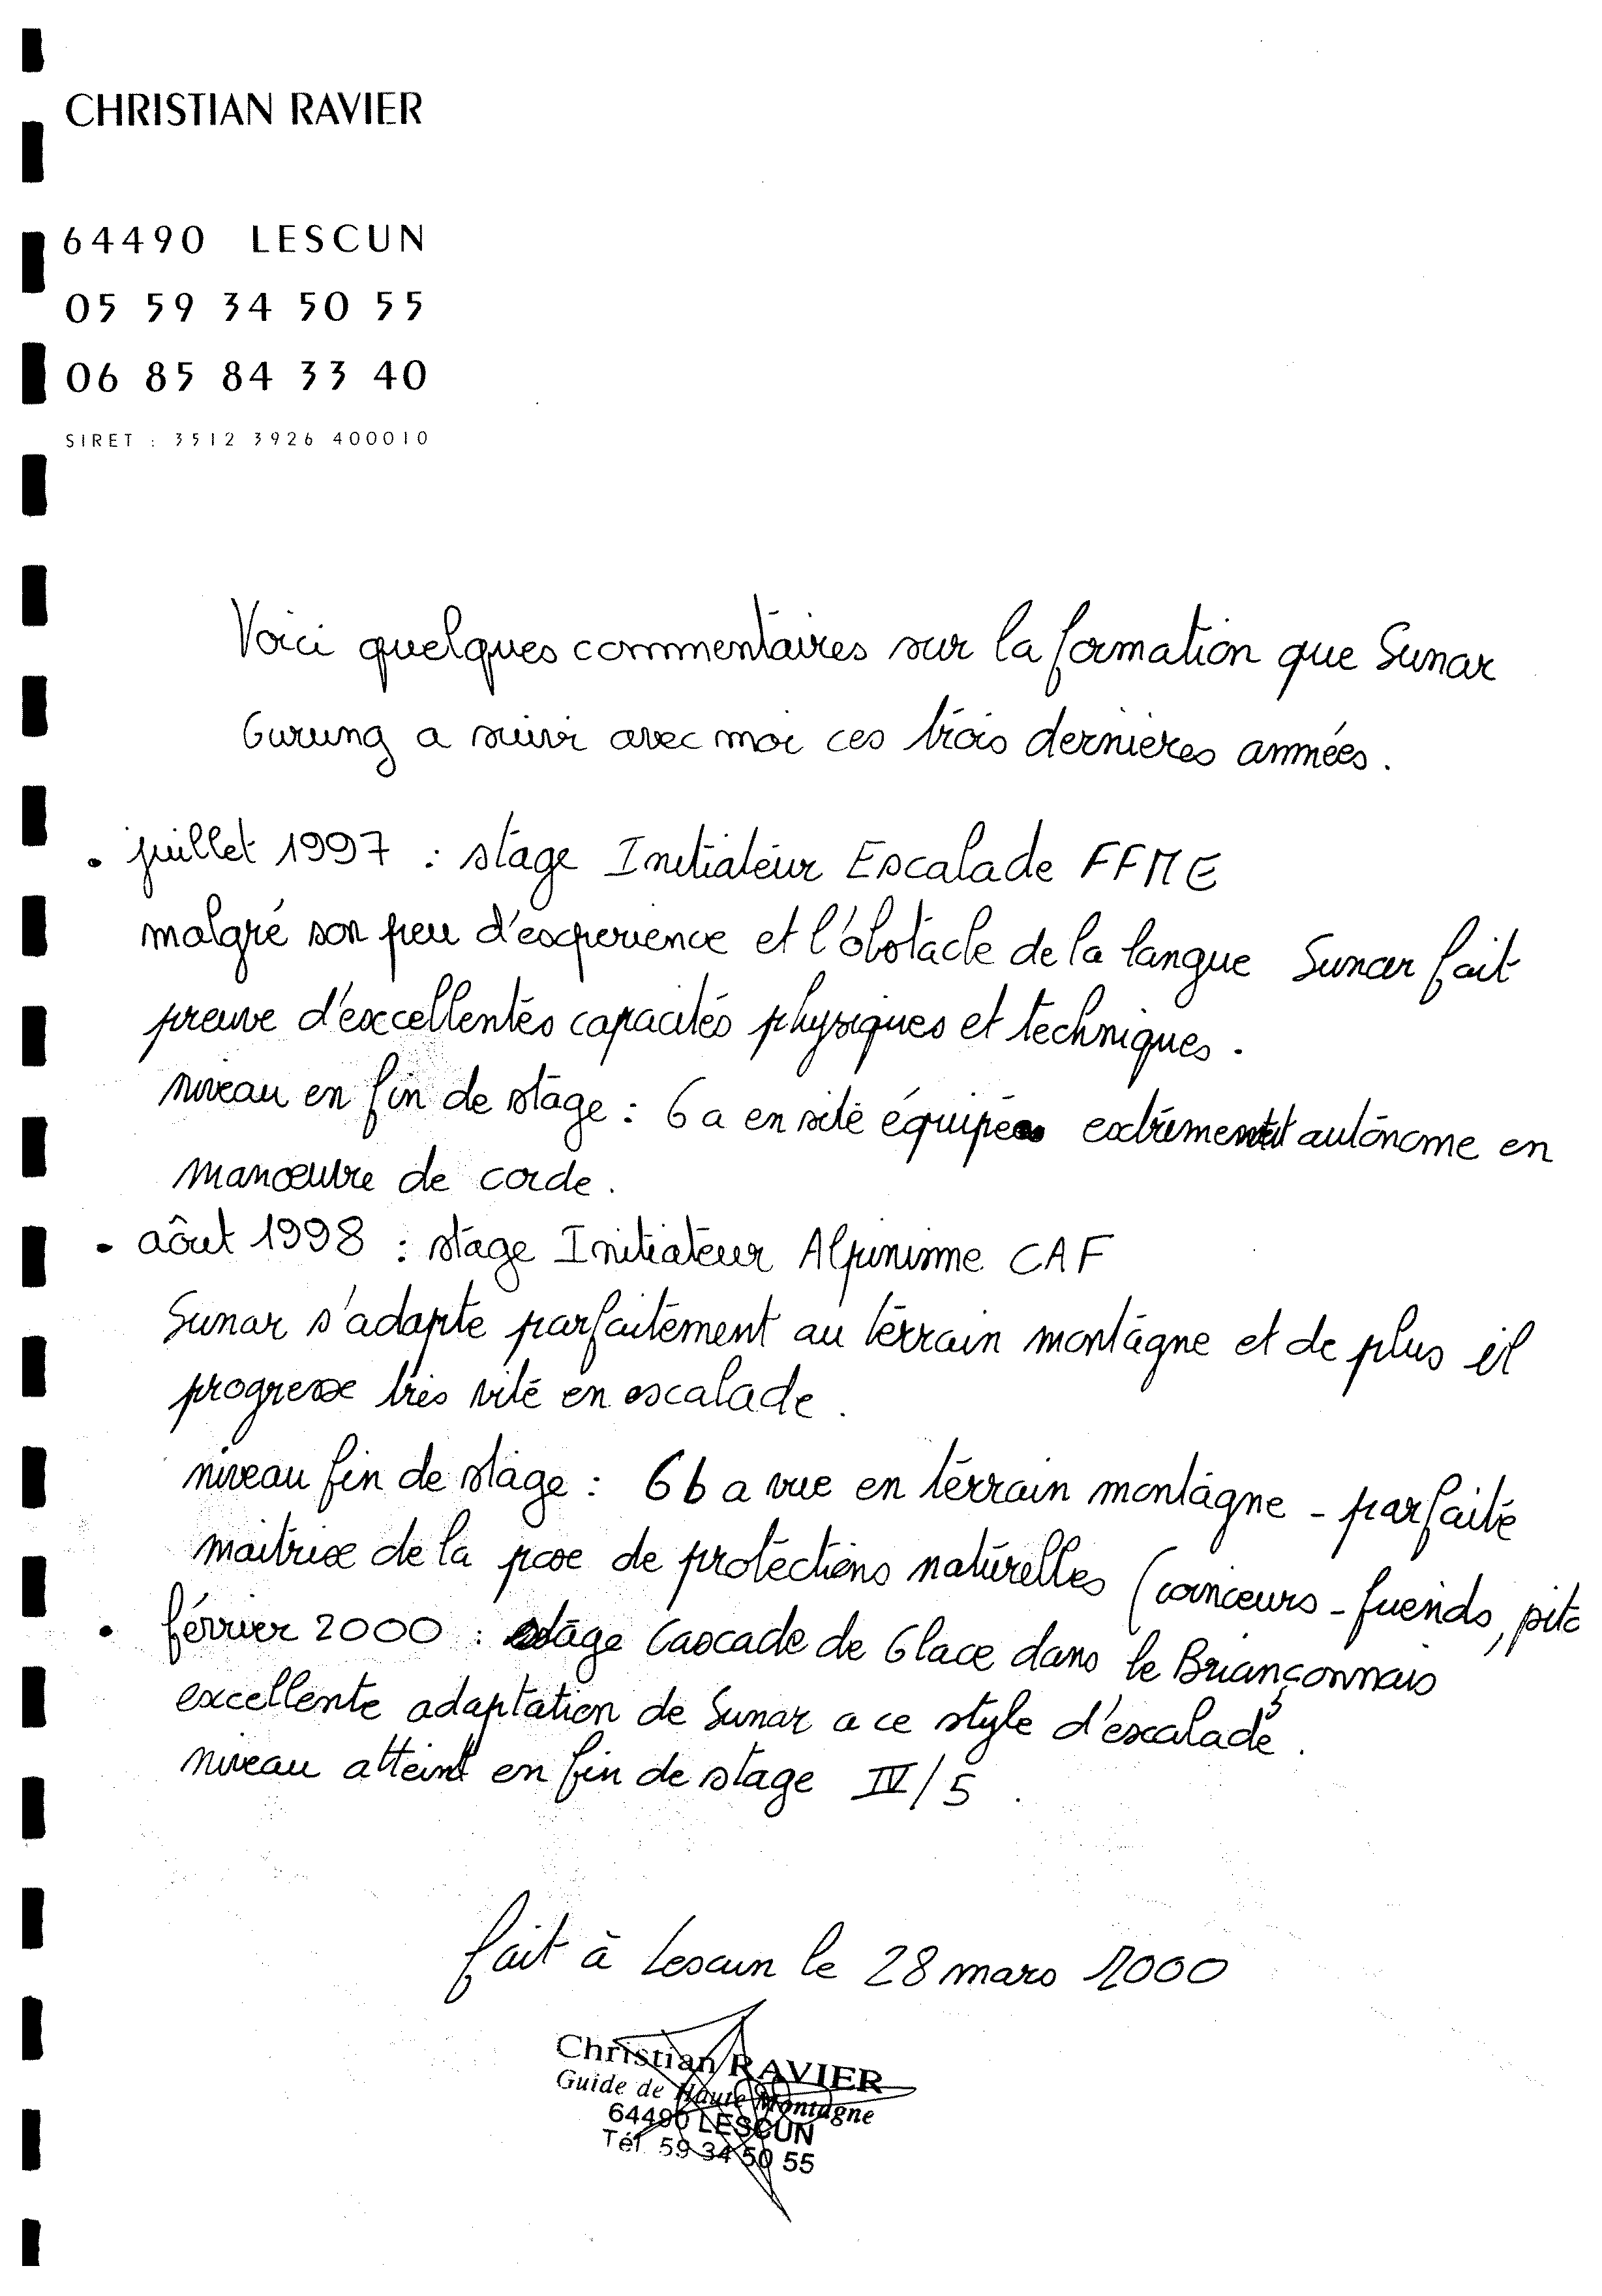 CHRISTIAN RAVIER
64490 LESCUN
05 59 34 50 55
06 85 84 33 40
SIRET : 3512 3926 400010
Voici quelques commentaires sur la formation que Sunar
Gurung a suivi avec moi ces trois dernières années.
• juillet 1997 : stage Initiateur Escalade FFME
malgré son peu d'experience et l'obstacle de la langue Sunar fait
preuve d'excellentes capacités physiques et techniques.
niveau en fin de stage : 6a en site équipé extrêmement autonome en
manœuvre de corde.
• aôut 1998 : stage Initiateur Alpinisme CAF
Sunar s'adapte parfaitement au terrain montagne et de plus il
progresse très vite en escalade.
niveau fin de stage : 6b a vue en terrain montagne - parfaite
maitrise de la pose de protections naturelles (coinceurs - friends, pito
• février 2000 : stage Cascade de Glace dans le Briançonnais
excellente adaptation de Sunar a ce style d'escalade.
niveau atteint en fin de stage IV/5.
fait à Lescun le 28 mars 2000
Christian RAVIER
Guide de Haute Montagne
64490 LESCUN
Tél. 59 34 50 55